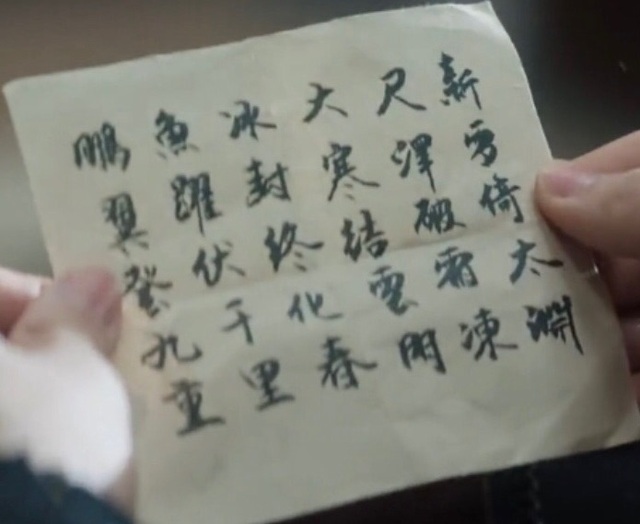 新雪倚太淵
尺澤破霜凍
大寒結雲門
冰封終化春
魚躍伏千里
鵬翼登九重